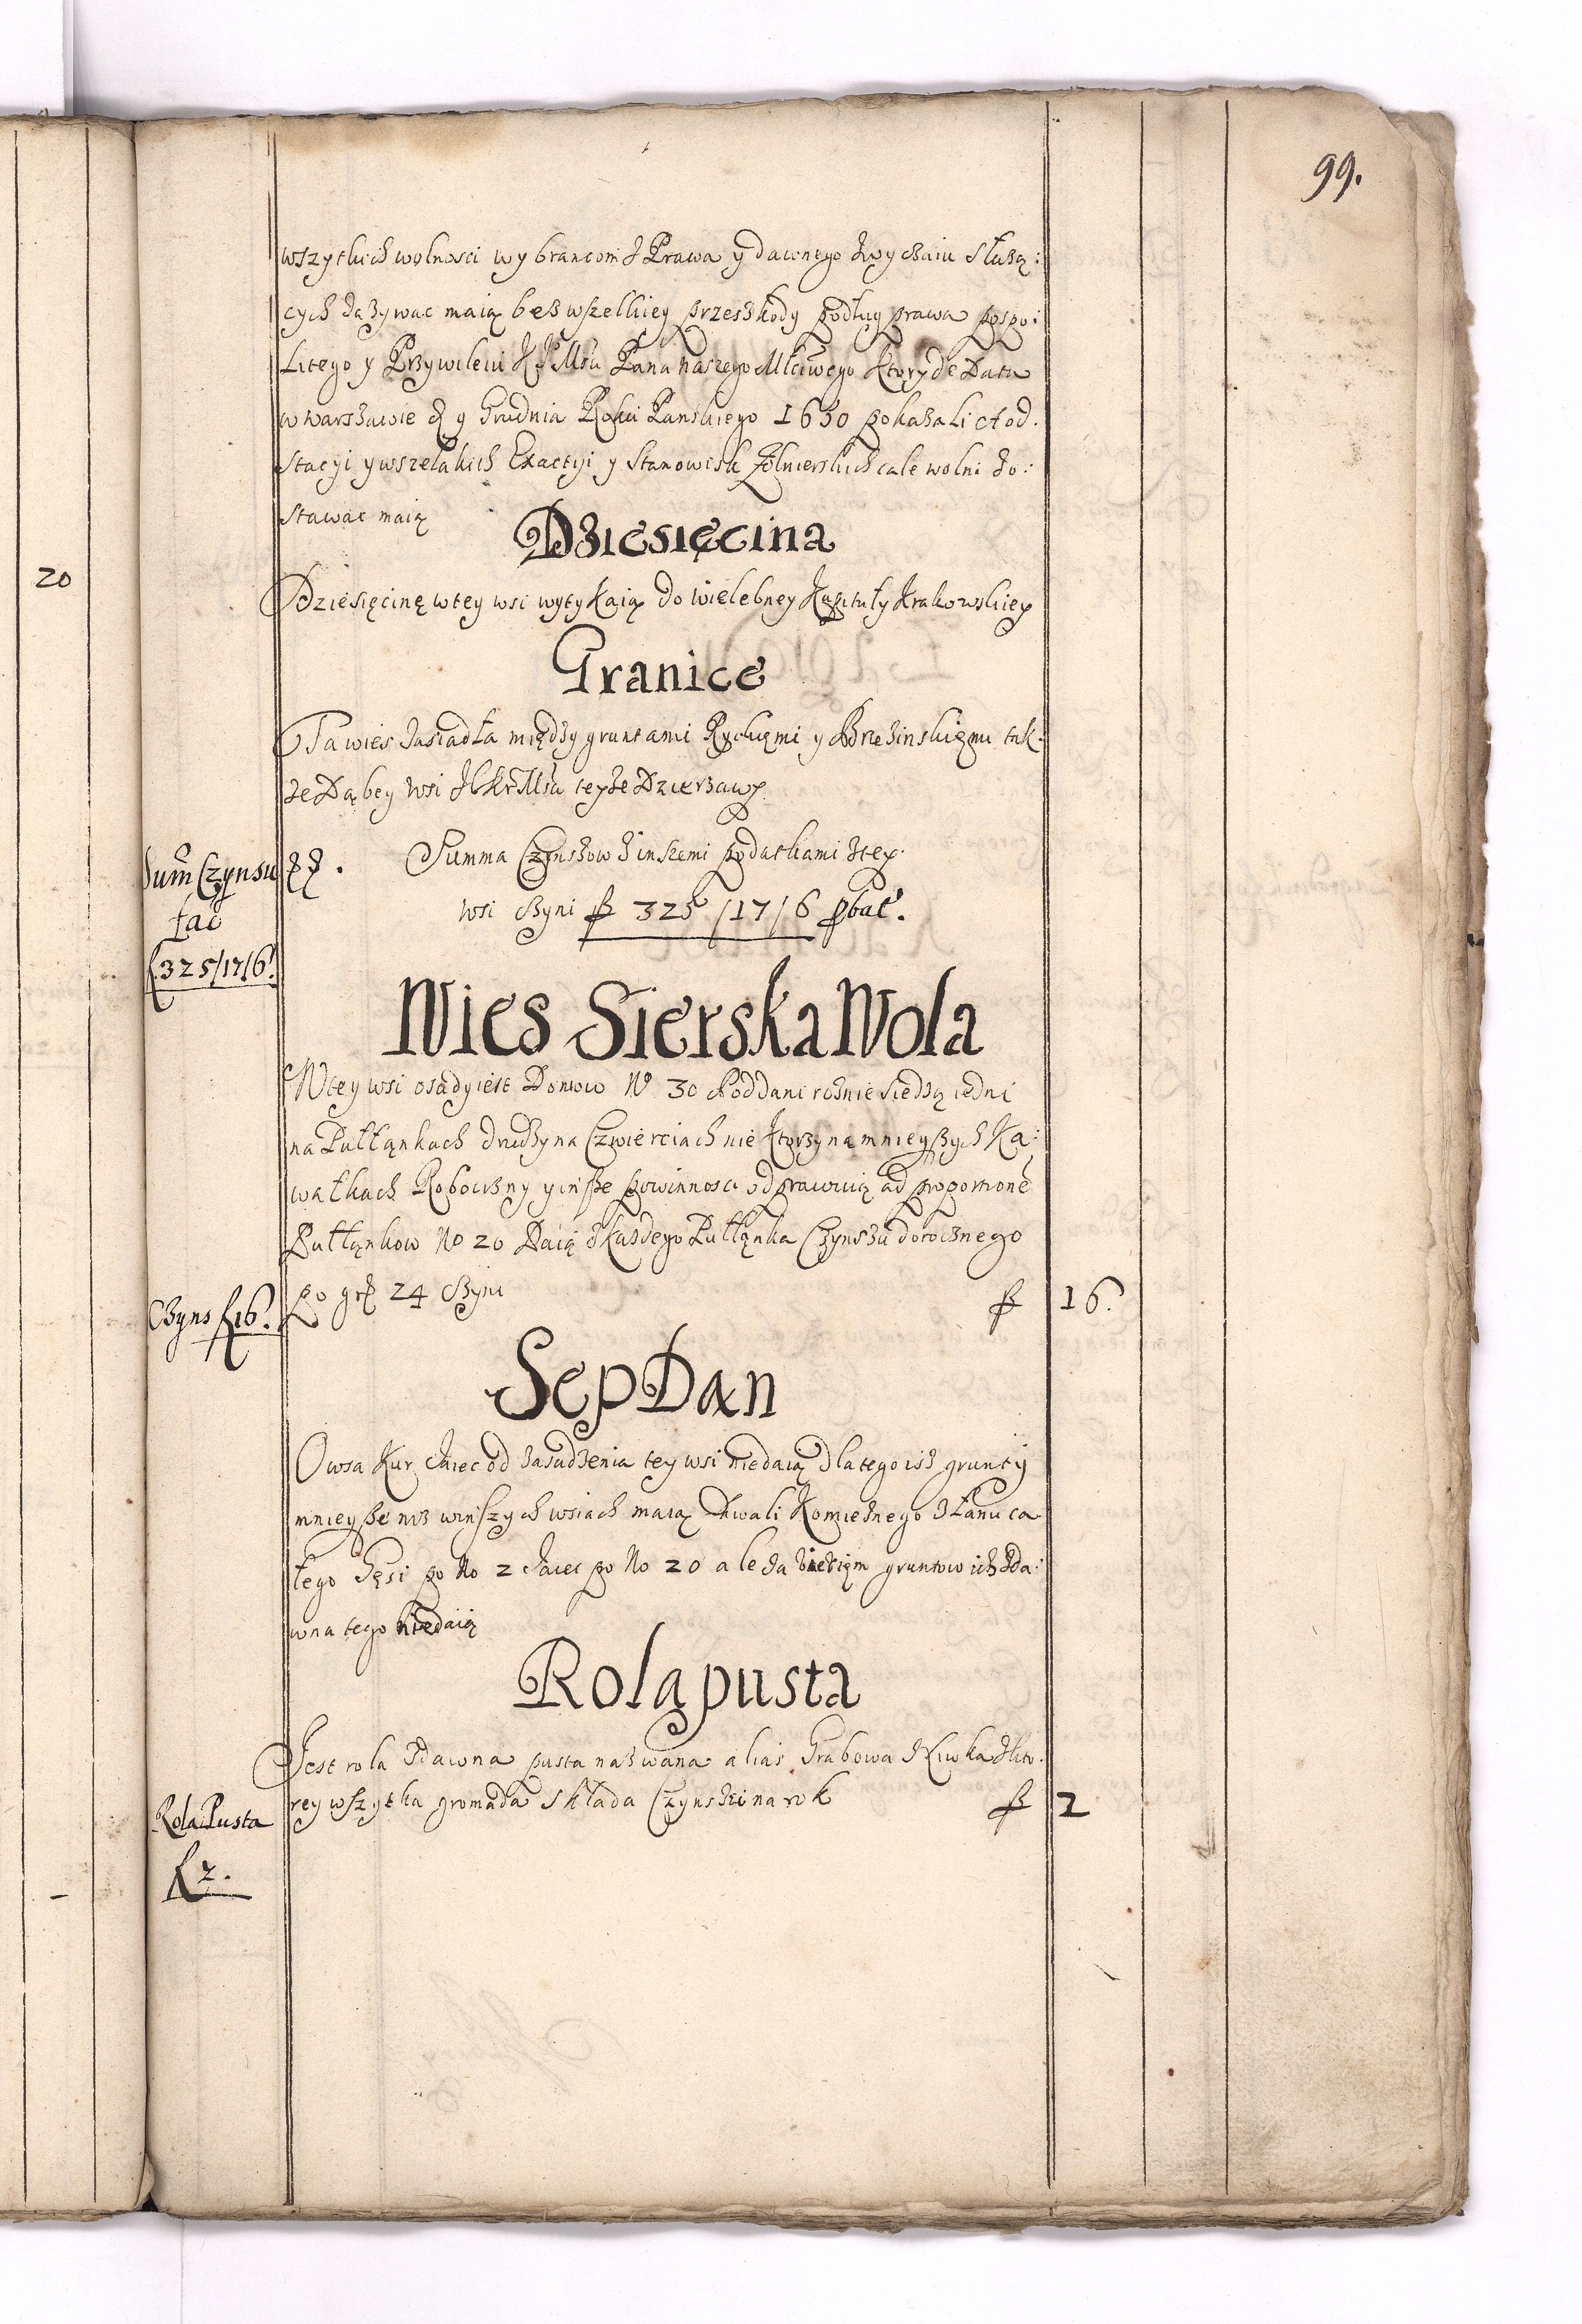 99.
wszytkich wolnosci wybrancom z Prawa y dawnego zwyczaiu słuzą:
cych zazywac maią bez wszelkiey przeszkody podług prawa pospo:
Litego y Przywileiu JKMsci Pana naszego Młciwego ktory de Data
w warszawie d 9 Grudnia Roku Panskiego 1630 pokazali et od
Stacyi y wszelakich Exactyi y Stanowisk Zołnierskich cale wolni zo:
stawac maią
Dziesięcina
Dziesięcinę w tey wsi wytykaią do wielebney Kapituły Krakowskiey
Granice
Ta wies zasiadła między gruntami Rychięmi y Brzezinskięmi tak:
ze Dąbey wsi JKrMsci teyze Dzierzawy
Summa Czynszow z inszemi podatkami z tey
wsi czyni f 325/17/6 pbat.
Sum̃ Czynsu
fac
f 325/17/6
20
Wies Sierska Wola
W tey wsi osady iest Domow No 30 Poddani roznie siedzą iedni
na Pułłankach drudzy na Czwierciach niektorzy na mnieyszych Ka:
wałkach Robocizny y insze powinnosci odprawuią ad proportione
Pułłankow No 20 Daią z kazdego Pułłanka Czynszu dorocznego
po gr 24 Czyni f 16.
Czyns f 16.
Sep Dan
Owsa Kur Jaiec od zasadzenia tey wsi niedaią dlatego isz grunty
mnieysze niz w inszych wsiach maią Dwali Komieznego z Łanu ca
łego Gęsi po No 2 Jaiec po No 20 ale za wzięciem gruntow ich zda:
wna tego niedaią
Rola pusta
Jest rola zdawna pusta nazwana alias Grabowa Niwka z kto:
rey wszytka gromada składa Czynszu na rok f 2
Rola Pusta
f 2.